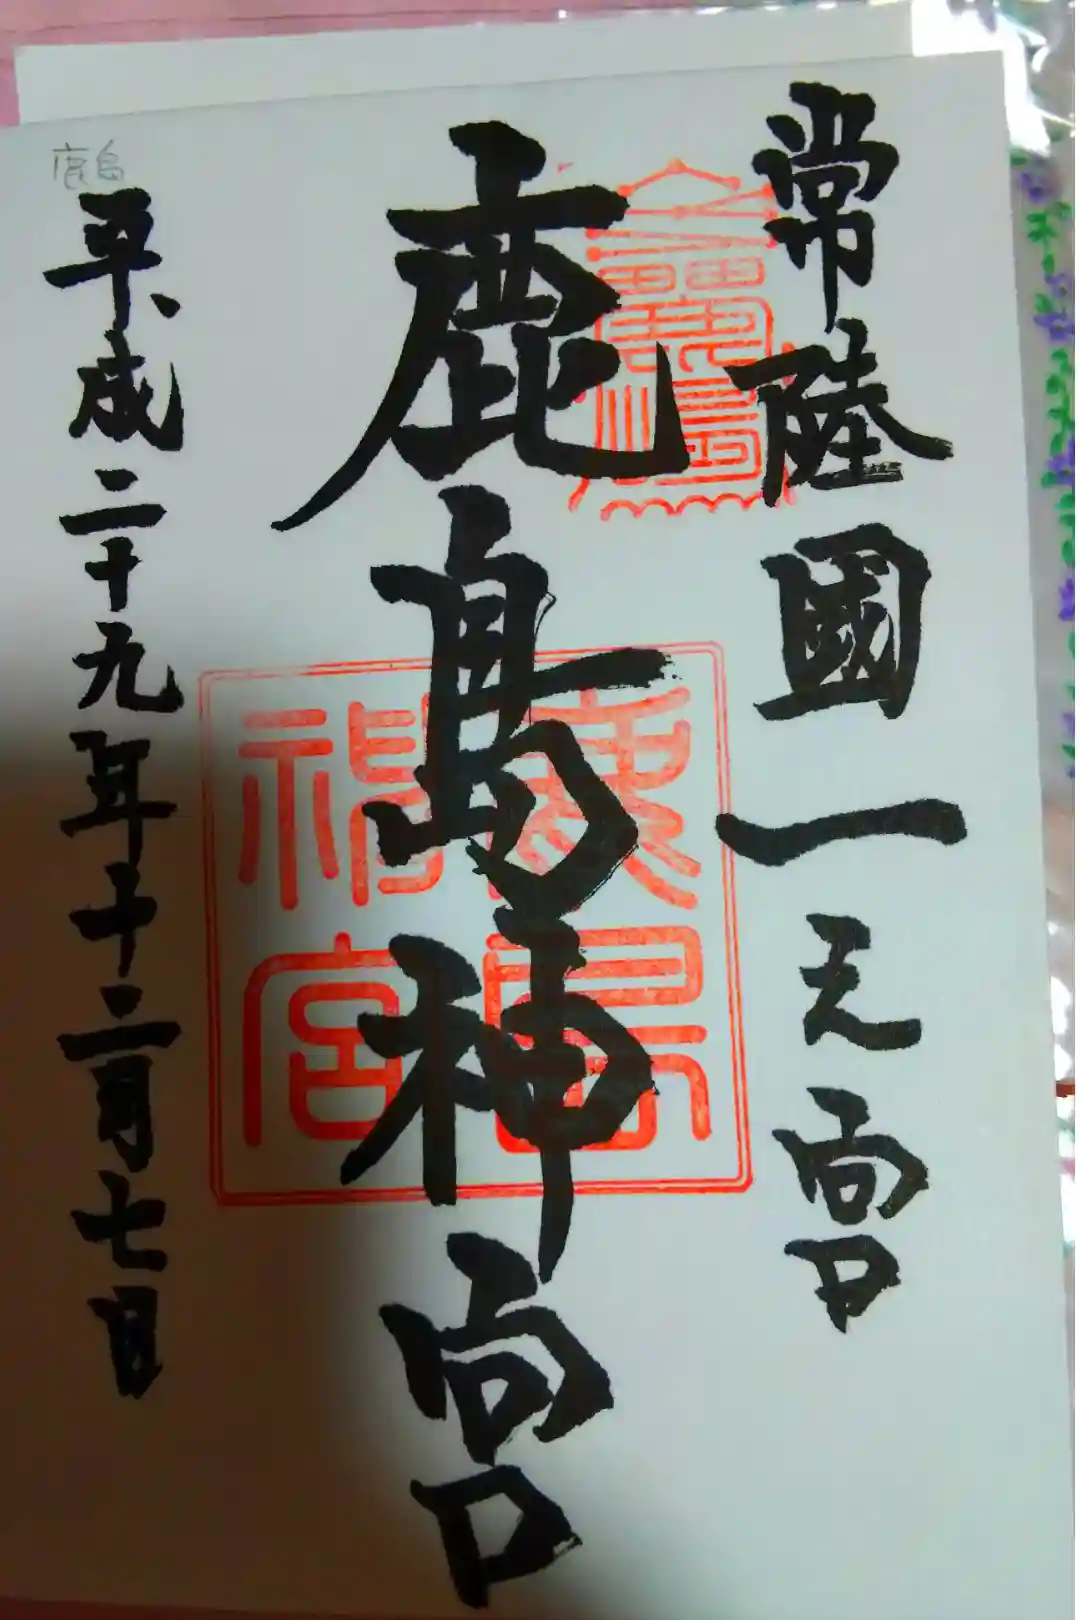 常陸國一之宮
鹿島神宮
鹿島
神宮
平成二十九年十二月七日
鹿島